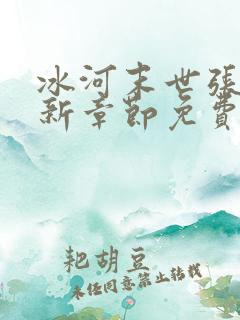 冰河末世张
新章节免费
耙胡豆
未经同意禁止转载